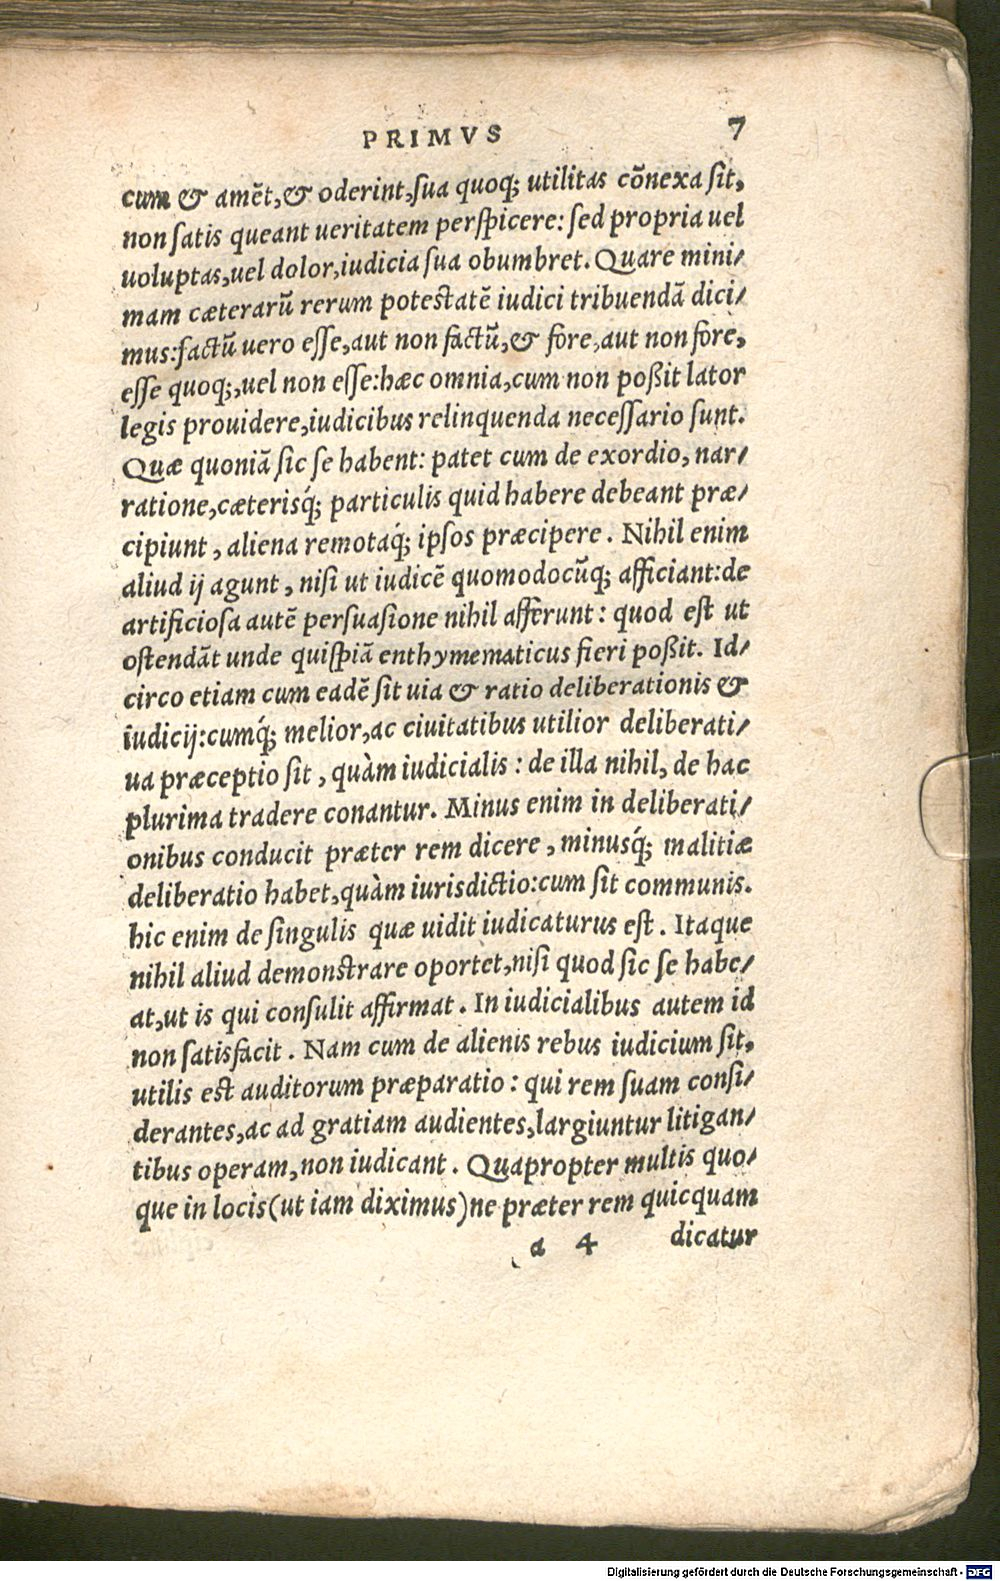 PRIMVS 7
cum & amẽt,& oderint,sua quoq; utilitas cõnexa sit,
non satis queant ueritatem perspicere: sed propria uel
uoluptas,uel dolor,iudicia sua obumbret. Quare mini/
mam cæterarũ rerum potestatẽ iudici tribuendã dici/
mus:factũ uero esse,aut non factũ,& fore,aut non fore,
esse quoq;,uel non esse:hæc omnia,cum non poßit lator
legis prouidere,iudicibus relinquenda necessario sunt.
Quæ quoniã sic se habent: patet cum de exordio, nar/
ratione,cæterisq́; particulis quid habere debeant præ/
cipiunt, aliena remotaq́; ipsos præcipere. Nihil enim
aliud ij agunt, nisi ut iudicẽ quomodocũq; afficiant:de
artificiosa autẽ persuasione nihil afferunt: quod est ut
ostendãt unde quispiã enthymematicus fieri poßit. Id/
circo etiam cum eadẽ sit uia & ratio deliberationis &
iudicij:cumq́; melior,ac ciuitatibus utilior deliberati/
ua præceptio sit, quàm iudicialis: de illa nihil, de hac
plurima tradere conantur. Minus enim in deliberati/
onibus conducit præter rem dicere, minusq́; malitiæ
deliberatio habet,quàm iurisdictio:cum sit communis.
hic enim de singulis quæ uidit iudicaturus est. Itaque
nihil aliud demonstrare oportet,nisi quod sic se habe/
at,ut is qui consulit affirmat. In iudicialibus autem id
non satisfacit. Nam cum de alienis rebus iudicium sit,
utilis est auditorum præparatio: qui rem suam consi/
derantes,ac ad gratiam audientes,largiuntur litigan/
tibus operam,non iudicant. Quapropter multis quo/
que in locis(ut iam diximus)ne præter rem quicquam
a 4 dicatur
Digitalisierung gefördert durch die Deutsche Forschungsgemeinschaft - DFG